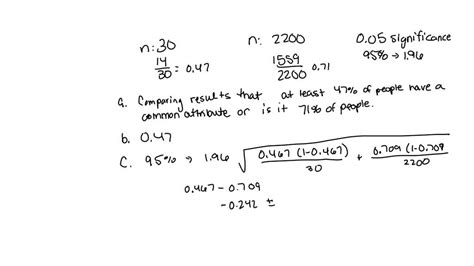 n: 30 n: 2200 0.05 significance
14/30 = 0.47 1559/2200 0.71 95% → 1.96
a. Comparing results that at least 47% of people have a
common attribute or is it 71% of people.
b. 0.47
C. 95% → 1.96 √ 0.467 (1-0.467)/30 + 0.709 (1-0.709/2200
0.467 - 0.709
-0.242 ±